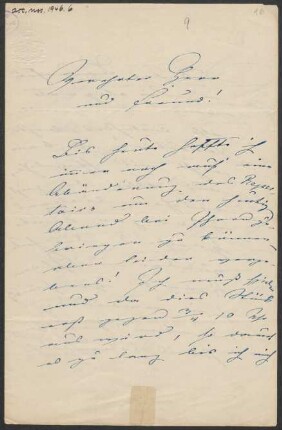 acc. ms. 1946. 6
9
10
Verehrter Herr
und Freund!
Bis heute hoffte ich
immer noch auf eine
Abänderung des Reper-
toirs um den heutigen
Abend bei Ihnen zu-
bringen zu können,
aber leider verge-
bens! Ich muß spielen
und da dies Stück
erst gegen ¾ 10 Uhr
aus wird, so dauert
es zu lang bis ich mich